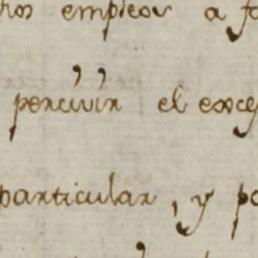 ros empleos a fa
percivir el exce
particular, y po